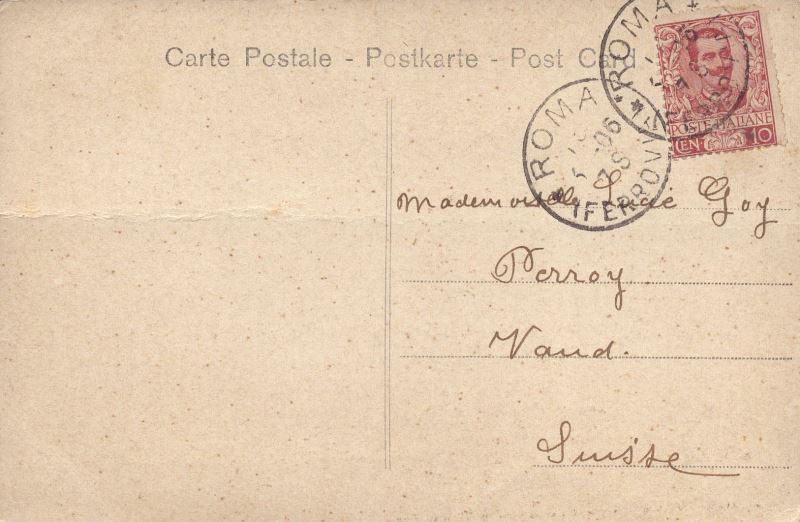 Carte Postale - Postkarte - Post Card
ROMA
ROMA
FERROVIA
06
POSTE ITALIANE
CEN 10
Mademoiselle Lucie Goy
Perroy
Vaud.
Suisse